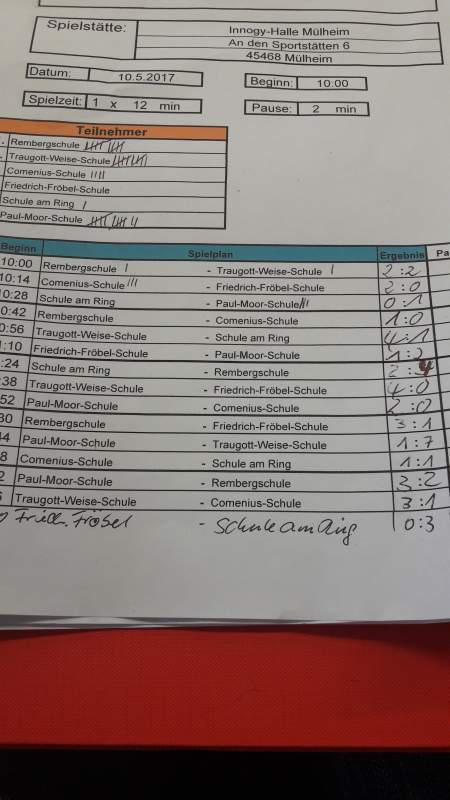 Spielstätte: Innogy-Halle Mülheim
An den Sportstätten 6
45468 Mülheim
Datum: 10.5.2017 Beginn: 10:00
Spielzeit: 1 x 12 min Pause: 2 min
Teilnehmer
Rembergschule
Traugott-Weise-Schule
Comenius-Schule
Friedrich-Fröbel-Schule
Schule am Ring
Paul-Moor-Schule
Beginn Spielplan Ergebnis Pa
10:00 Rembergschule - Traugott-Weise-Schule 2:2
10:14 Comenius-Schule - Friedrich-Fröbel-Schule 2:0
10:28 Schule am Ring - Paul-Moor-Schule 0:1
0:42 Rembergschule - Comenius-Schule 1:0
0:56 Traugott-Weise-Schule - Schule am Ring 4:1
1:10 Friedrich-Fröbel-Schule - Paul-Moor-Schule 1:2
:24 Schule am Ring - Rembergschule 2:4
:38 Traugott-Weise-Schule - Friedrich-Fröbel-Schule 4:0
52 Paul-Moor-Schule - Comenius-Schule 2:0
30 Rembergschule - Friedrich-Fröbel-Schule 3:1
44 Paul-Moor-Schule - Traugott-Weise-Schule 1:7
8 Comenius-Schule - Schule am Ring 1:1
2 Paul-Moor-Schule - Rembergschule 3:2
Traugott-Weise-Schule - Comenius-Schule 3:1
Fried. Fröbel - Schule am Ring 0:3